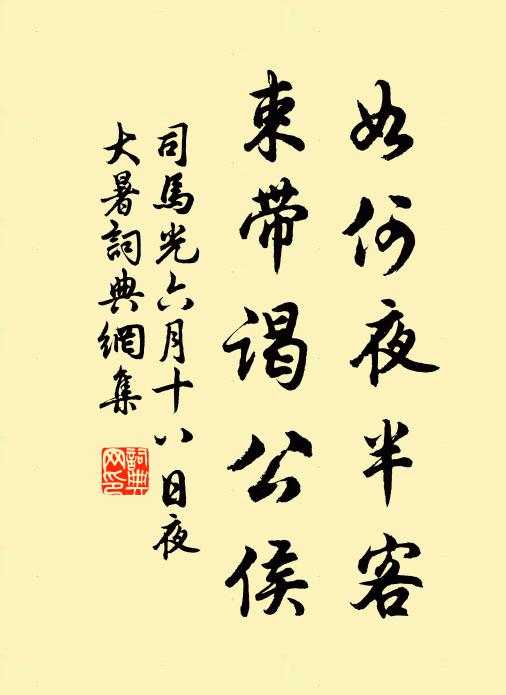 如何夜半客
束帶谒公侯
司馬光六月十八日夜
大暑詞典網集
詞典网印